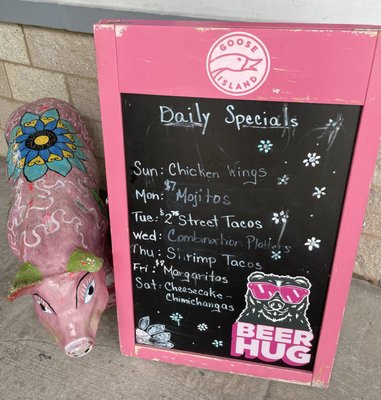 GOOSE
ISLAND
Daily Specials
Sun: Chicken Wings
Mon: $7 Mojitos
Tue: $2 Street Tacos
Wed: Combination Platters
Thu: Shrimp Tacos
Fri: Margaritas
Sat: Cheesecake -
Chimichangas
BEER
HUG